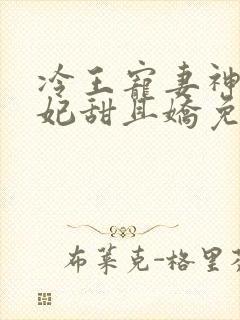 冷王寵妻神
妃甜且嬌
布萊克-格里